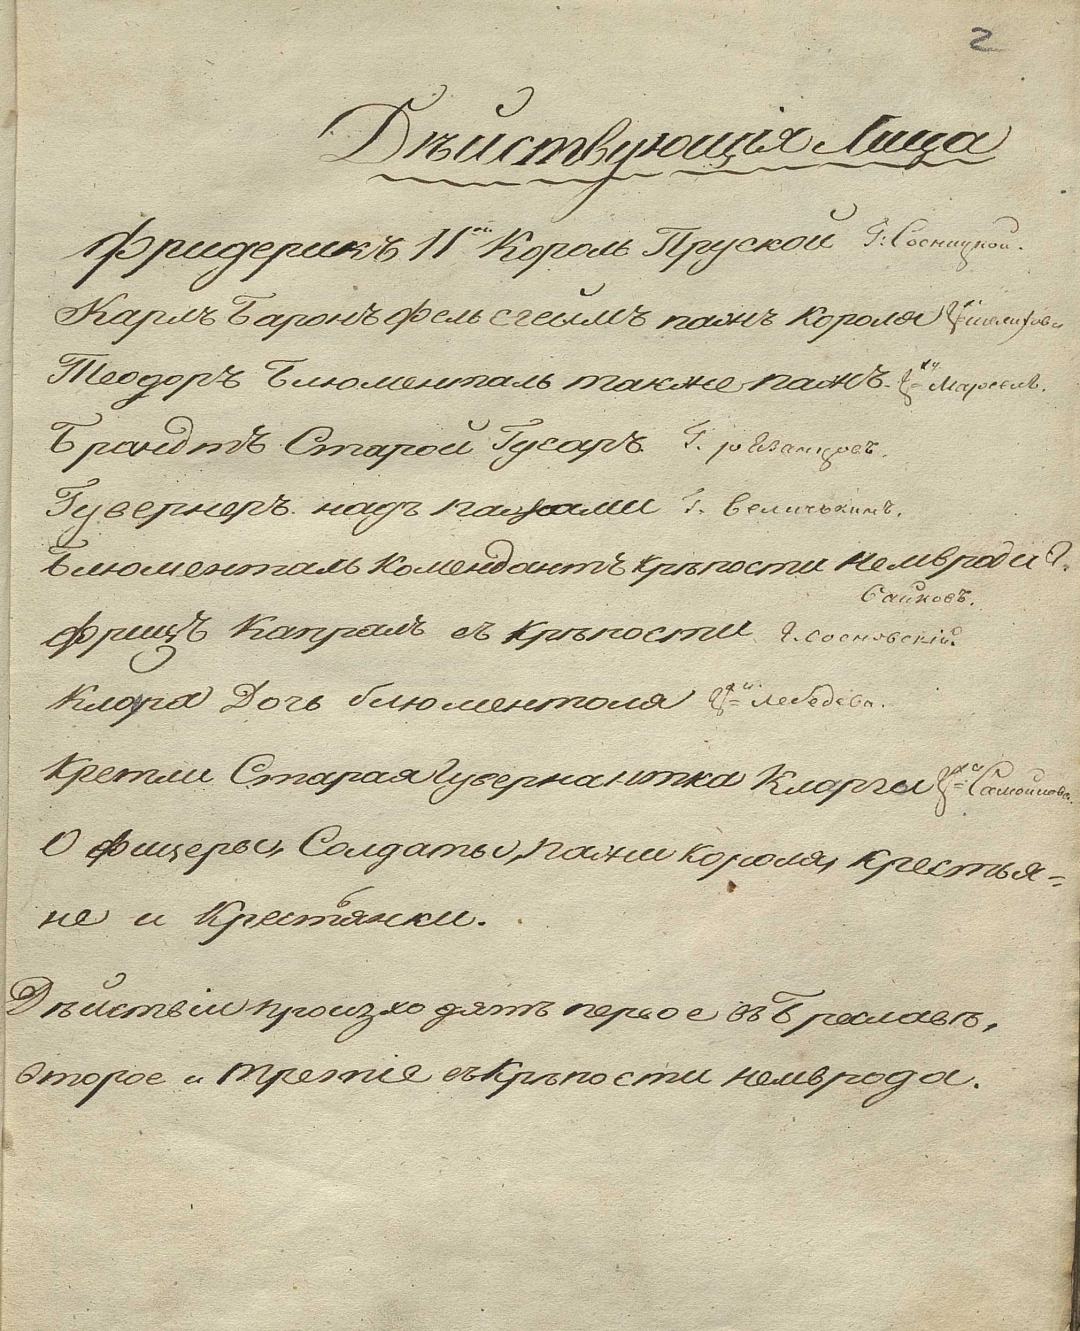 2
Дѣйствующія Лица
Фридерикъ IIой Король Пруской Г: Сосницкой.
Карлъ Баронъ Фельсгеймъ пажъ короля
Теодоръ Блюменталь также пажъ.
Брандтъ Старой Гусаръ. Г. рязанцовъ.
Гувернеръ надъ пажами Г. величькинъ.
Блюменталь Комендантъ крѣпости Немврода Г.
Байковъ.
Фрицъ Капралъ въ крѣпости Г. сосновскій.
Клара Дочь блюменталя Г=жа Лебедева.
Кретли Старая Гувернантка Клары Г=жа Самойлова.
Офицеры, Солдаты, пажи короля, крестья=
не и Крестьянки.
Дѣйствіи произходятъ первое въ Бреславлѣ,
второе и третіе въ Крѣпости немврода.